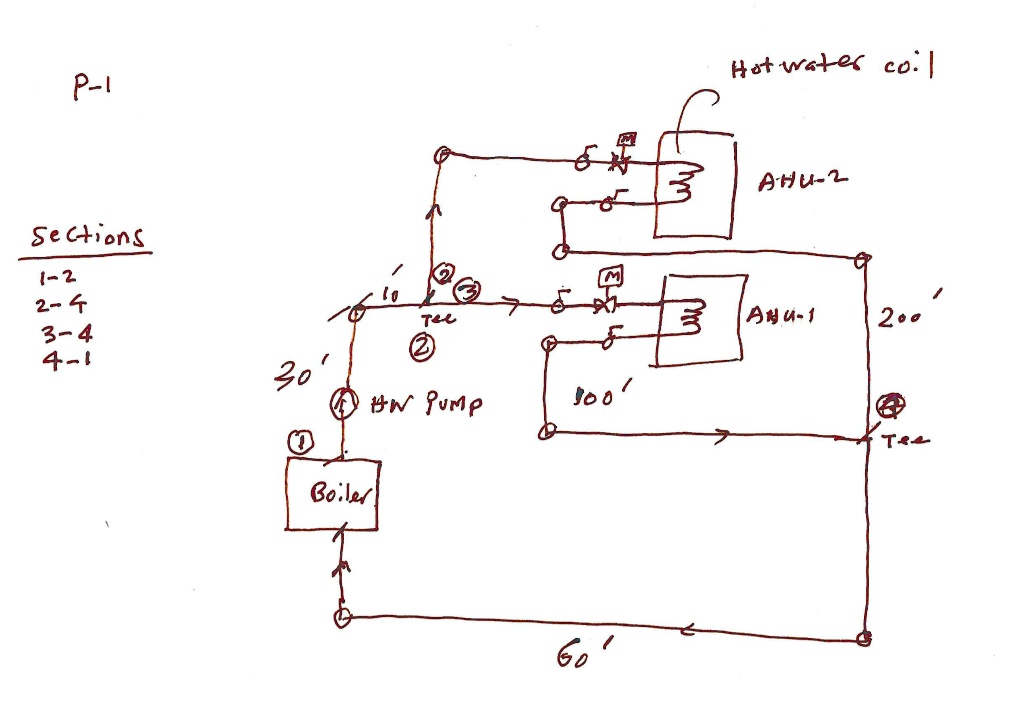 P-1
Hot water coil
M
AHU-2
Sections
1-2
2-4
3-4
4-1
10'
2
3
Tee
2
M
AHU-1
200'
30'
HW PUMP
100'
4
Tee
1
Boiler
60'